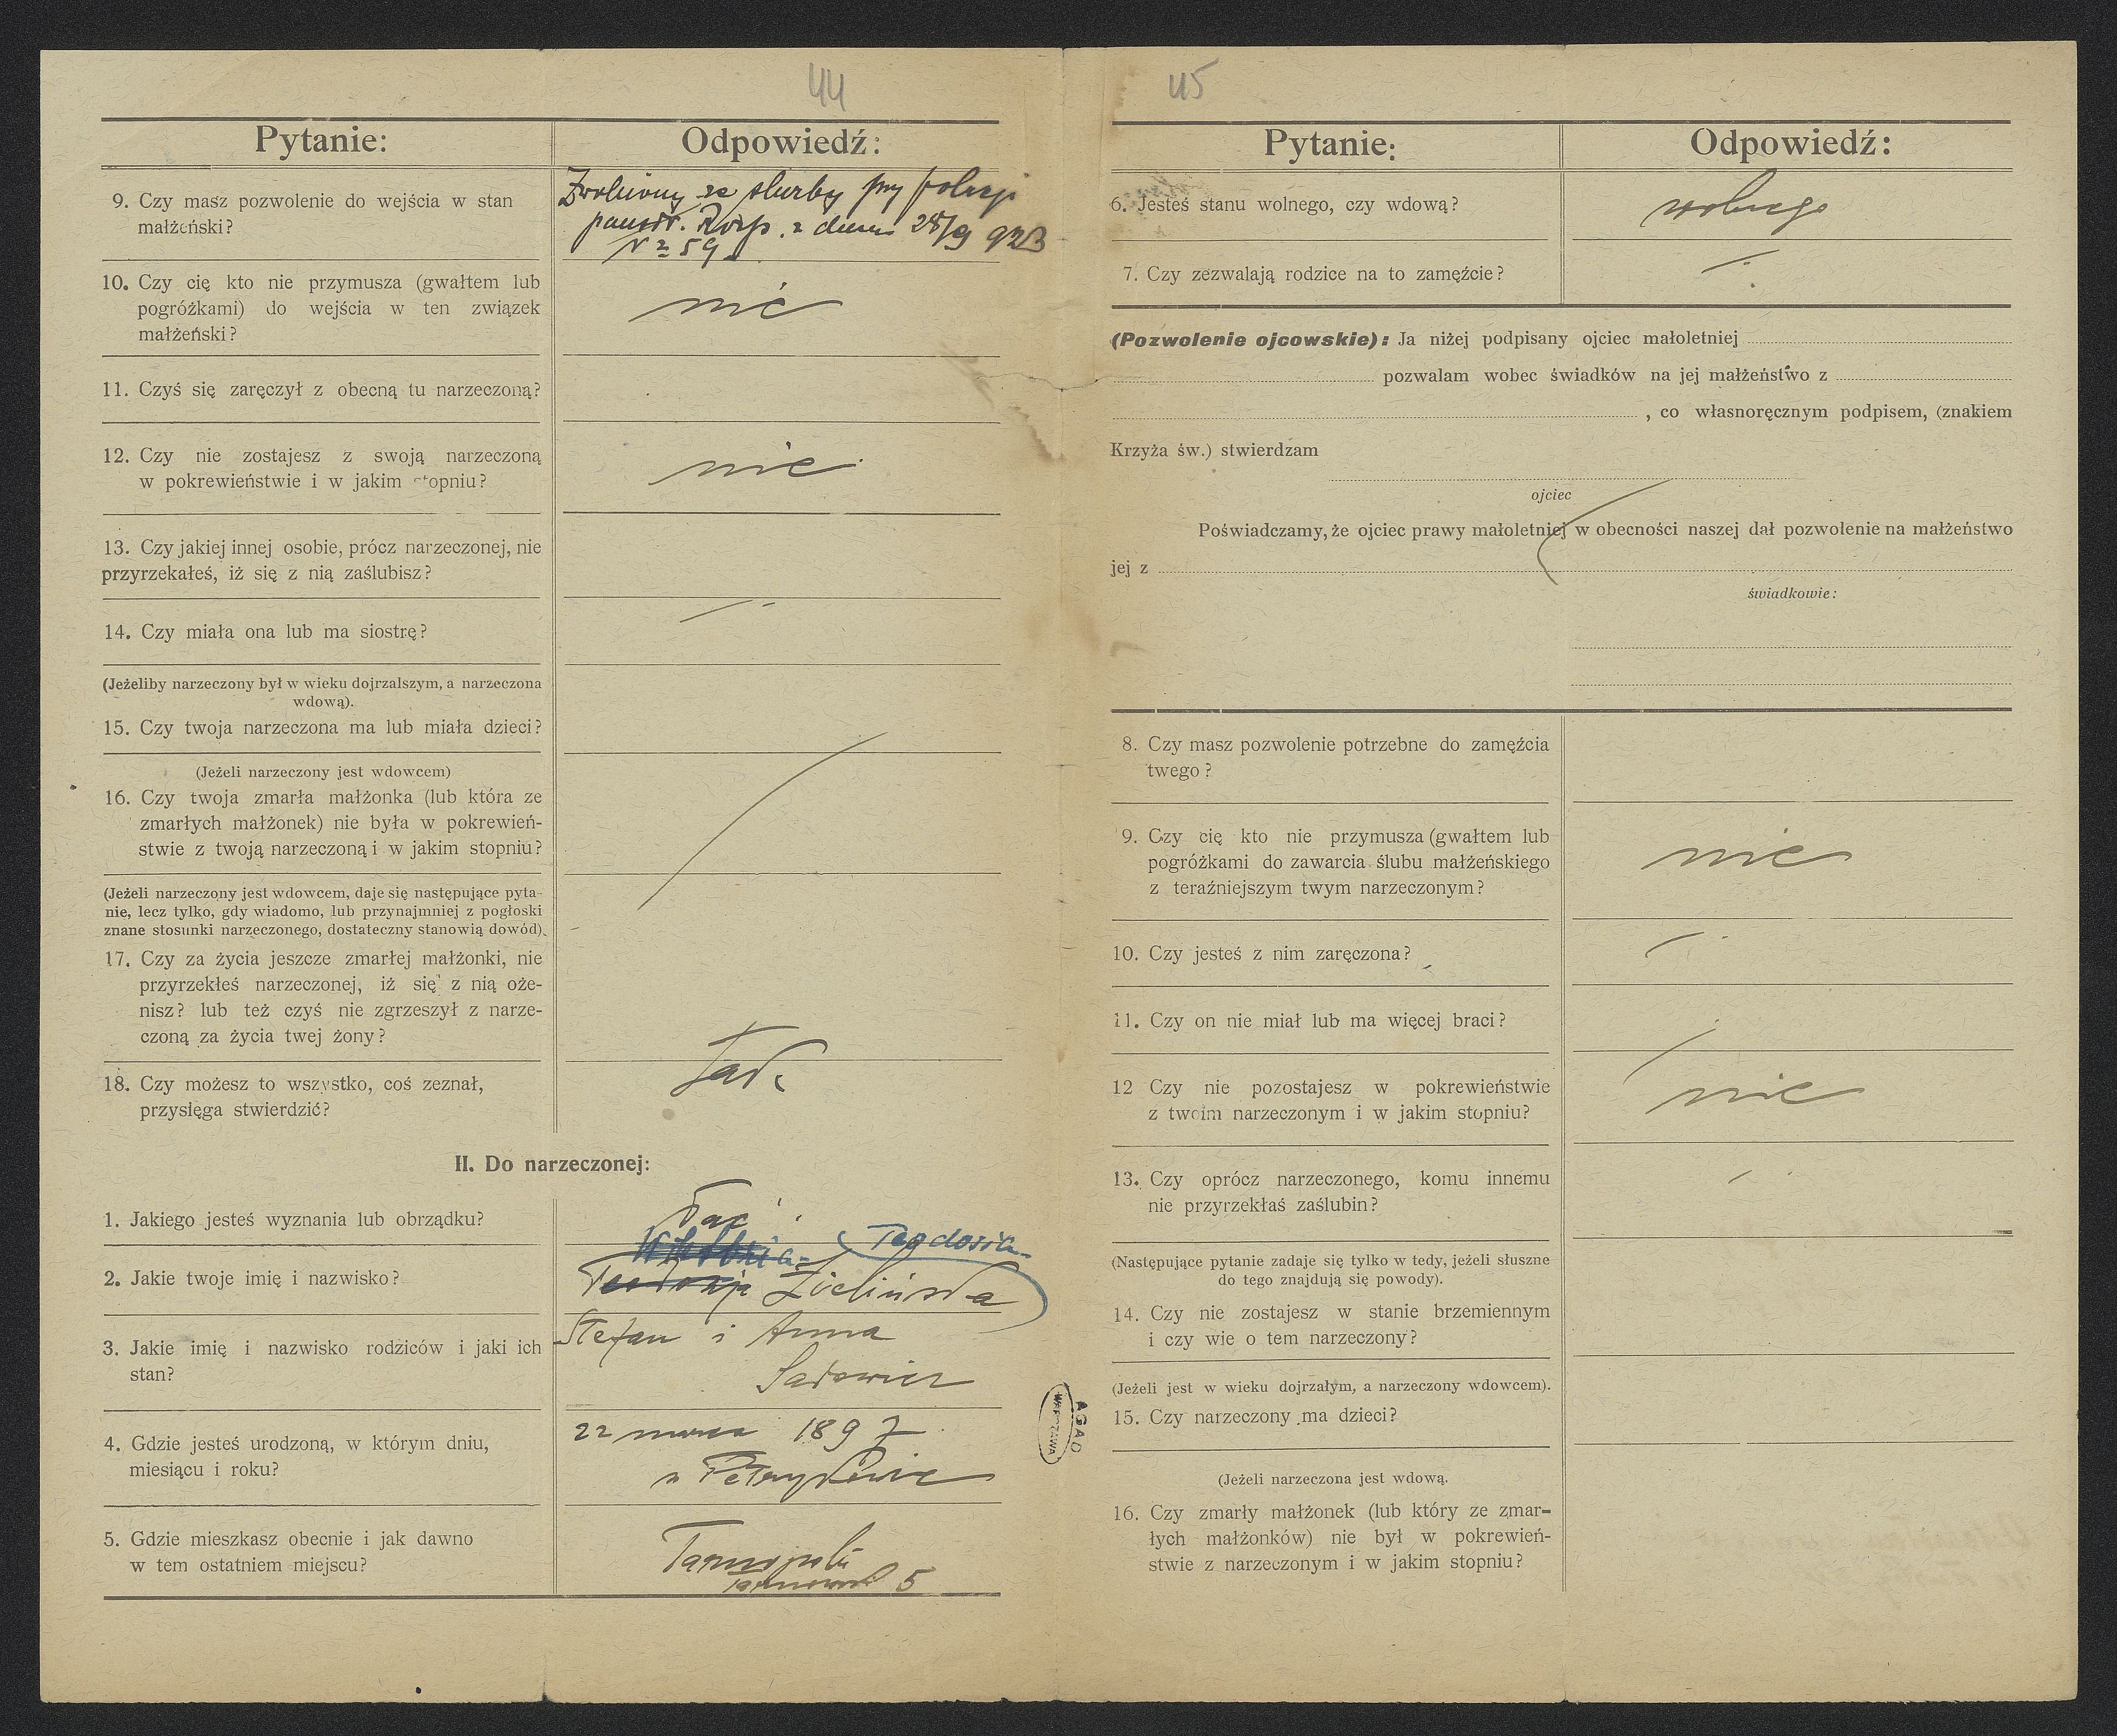 44
Pytanie:
Odpowiedź:
9. Czy masz pozwolenie do wejścia w stan
małżeński?
Zwolniony ze służby przy policji
państw. Rozp. z dnia 28/9 923
N 59
10. Czy cię kto nie przymusza (gwałtem lub
pogróżkami) do wejścia w ten związek
małżeński?
nie
11. Czyś się zaręczył z obecną tu narzeczoną?
12. Czy nie zostajesz z swoją narzeczoną
w pokrewieństwie i w jakim stopniu?
nie
13. Czy jakiej innej osobie, prócz narzeczonej, nie
przyrzekałeś, iż się z nią zaślubisz?
14. Czy miała ona lub ma siostrę?
(Jeżeliby narzeczony był w wieku dojrzalszym, a narzeczona
wdową).
15. Czy twoja narzeczona ma lub miała dzieci?
(Jeżeli narzeczony jest wdowcem)
16. Czy twoja zmarła małżonka (lub która ze
zmarłych małżonek) nie była w pokrewień-
stwie z twoją narzeczoną i w jakim stopniu?
(Jeżeli narzeczony jest wdowcem, daje się następujące pyta-
nie, lecz tylko, gdy wiadomo, lub przynajmniej z pogłoski
znane stosunki narzeczonego, dostateczny stanowią dowód).
17. Czy za życia jeszcze zmarłej małżonki, nie
przyrzekłeś narzeczonej, iż się z nią oże-
nisz? lub też czyś nie zgrzeszył z narze-
czoną za życia twej żony?
18. Czy możesz to wszystko, coś zeznał,
przysięga stwierdzić?
Tak
II. Do narzeczonej:
1. Jakiego jesteś wyznania lub obrządku?
łac
2. Jakie twoje imię i nazwisko?
Teodosia
Zielińska
3. Jakie imię i nazwisko rodziców i jaki ich
stan?
Stefan i Anna
Sadowicz
4. Gdzie jesteś urodzoną, w którym dniu,
miesiącu i roku?
22 marca 1897
w
5. Gdzie mieszkasz obecnie i jak dawno
w tem ostatniem miejscu?
Tarnopolu
5
AGAD
WARSZAWA
45
Pytanie:
Odpowiedź:
6. Jesteś stanu wolnego, czy wdową?
wolnego
7. Czy zezwalają rodzice na to zamęźcie?
(Pozwolenie ojcowskie): Ja niżej podpisany ojciec małoletniej
pozwalam wobec świadków na jej małżeństwo z
, co własnoręcznym podpisem, (znakiem
Krzyża św.) stwierdzam
ojciec
Poświadczamy, że ojciec prawy małoletniej w obecności naszej dał pozwolenie na małżeństwo
jej z
świadkowie:
8. Czy masz pozwolenie potrzebne do zamęźcia
twego?
9. Czy cię kto nie przymusza (gwałtem lub
pogróżkami do zawarcia ślubu małżeńskiego
z teraźniejszym twym narzeczonym?
nie
10. Czy jesteś z nim zaręczona?
11. Czy on nie miał lub ma więcej braci?
12 Czy nie pozostajesz w pokrewieństwie
z twoim narzeczonym i w jakim stopniu?
nie
13. Czy oprócz narzeczonego, komu innemu
nie przyrzekłaś zaślubin?
(Następujące pytanie zadaje się tylko w tedy, jeżeli słuszne
do tego znajdują się powody).
14. Czy nie zostajesz w stanie brzemiennym
i czy wie o tem narzeczony?
(Jeżeli jest w wieku dojrzałym, a narzeczony wdowcem).
15. Czy narzeczony ma dzieci?
(Jeżeli narzeczona jest wdową.
16. Czy zmarły małżonek (lub który ze zmar-
łych małżonków) nie był w pokrewień-
stwie z narzeczonym i w jakim stopniu?